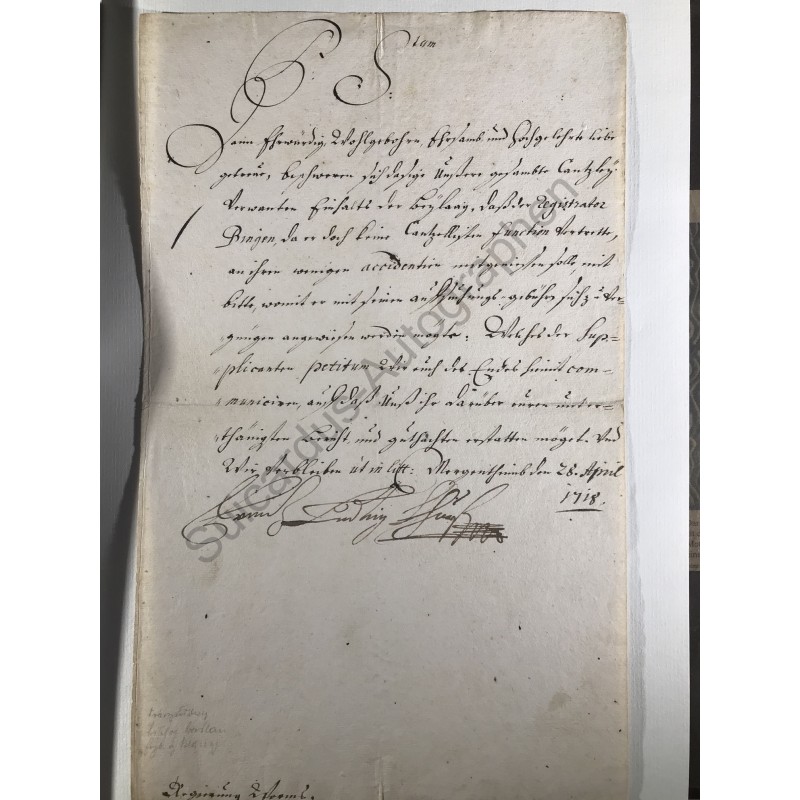 P: S: tum
Auch Ehrwürdig, Wohlgebohrn, Ehrsamb und Hochgelehrte liebe
getreue, beschweren sich dasige Unßere gesambte Cantzley-
Verwanten Einhalts der Beylaag, daß der Registrator
Bingen, da er doch keine Cantzellisten function vertrette,
an ihren wenigen accidentien mitgeniessen solle, mit
bitte, womit er mit seinen auffsuchungs-gebühr sich zu ver-
gnügen angewiesen werden mögte: Welches der Sup-
plicanten petitum Wir euch des Endes hiemit com-
municiren, auff daß Unß ihr darüber euren unter-
thänigsten Bericht und guthachten erstatten möget. Und
Wir verbleiben ut in litt: Mergentheimb den 28. April
1718.
Frantz Ludwig
Regierung Worms.
Sucardus-Autographen